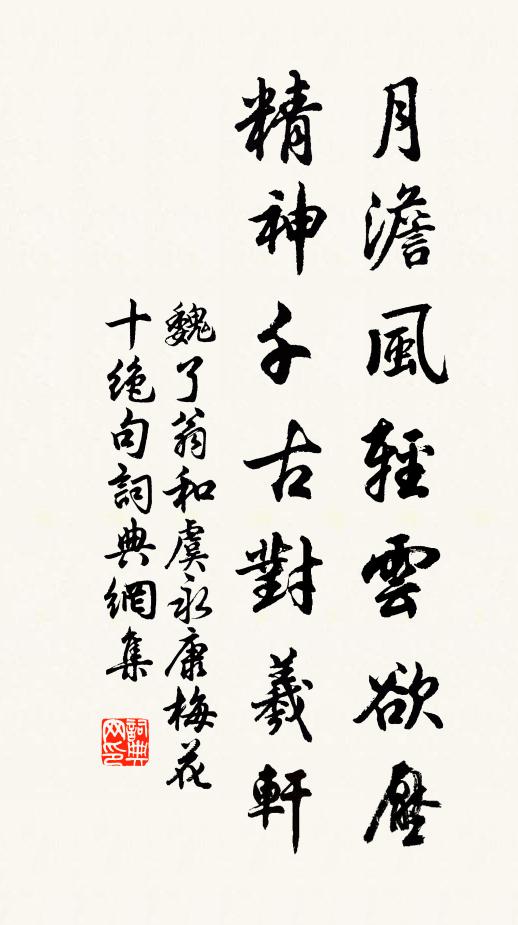 月澹風輕雲欲壓
精神千古對羲軒
魏了翁和虞永康梅花
十絕句詞典網集
詞典
网印